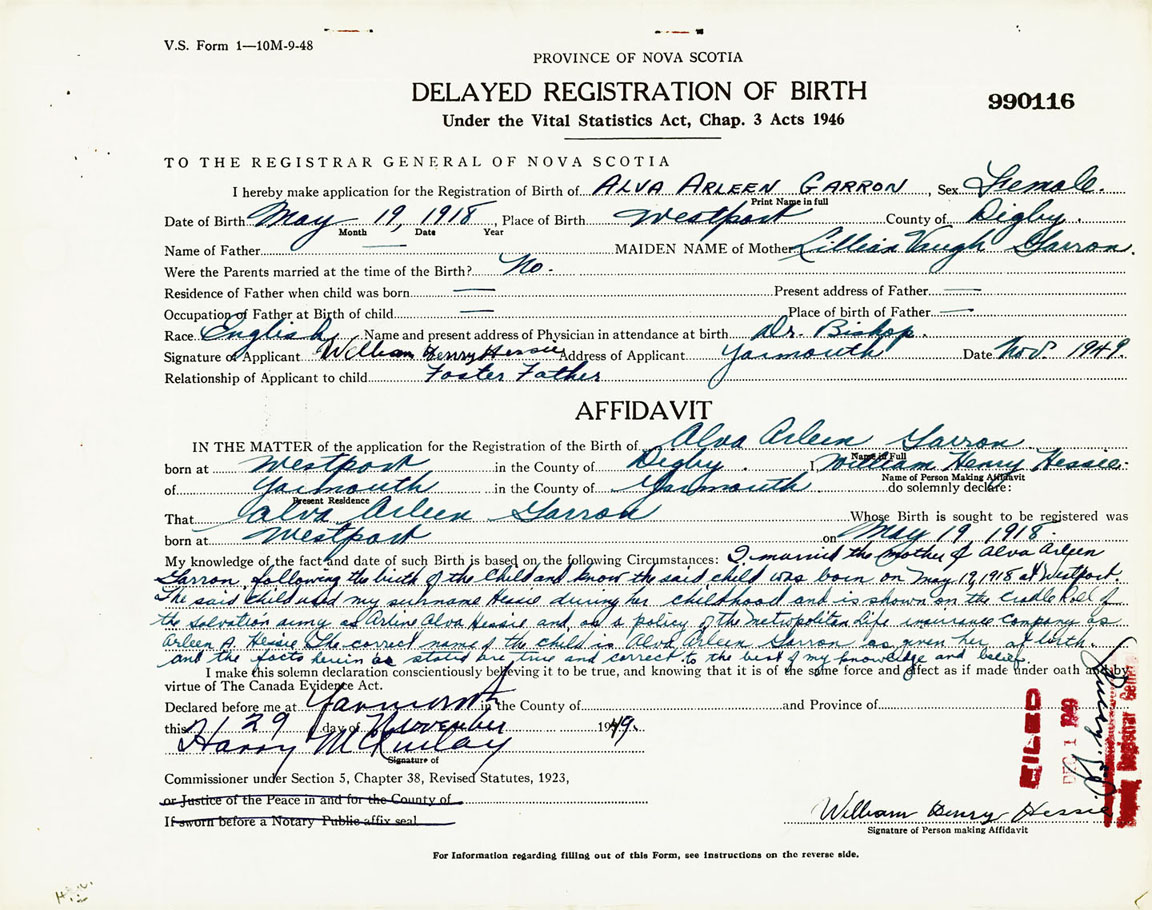 V.S. Form 1—10M-9-48
PROVINCE OF NOVA SCOTIA
DELAYED REGISTRATION OF BIRTH
990116
Under the Vital Statistics Act, Chap. 3 Acts 1946
TO THE REGISTRAR GENERAL OF NOVA SCOTIA
I hereby make application for the Registration of Birth of ALVA ARLEEN GARRON, Sex Female.
Print Name in full
Date of Birth May 19, 1918, Place of Birth Westport County of Digby.
Month Date Year
Name of Father — MAIDEN NAME of Mother Lillian Vaugh Garron.
Were the Parents married at the time of the Birth? No.
Residence of Father when child was born — Present address of Father —
Occupation of Father at Birth of child — Place of birth of Father —
Race English Name and present address of Physician in attendance at birth Dr. Bishop.
Signature of Applicant William Henry Hessie Address of Applicant Yarmouth Date Nov. 1949.
Relationship of Applicant to child Foster Father
AFFIDAVIT
IN THE MATTER of the application for the Registration of the Birth of Alva Arleen Garron
Name in Full
born at Westport in the County of Digby. I William Henry Hessie.
Name of Person Making Affidavit
of Yarmouth in the County of Yarmouth do solemnly declare:
Present Residence
That Alva Arleen Garron Whose Birth is sought to be registered was
born at Westport on May 19 1918.
My knowledge of the fact and date of such Birth is based on the following Circumstances: I married the mother of Alva Arleen
Garron, following the birth of the child and know the said child was born on May 19, 1918 at Westport.
The said child used my surname Hessie during her childhood and is shown on the Cradle Roll of
the salvation army as Arline Alva Hessie and, on a policy of the Metropolitan Life insurance company as
Arleen A. Hessie. The correct name of the child is Alva Arleen Garron as given her at birth.
and the facts herein as stated are true and correct to the best of my knowledge and belief.
I make this solemn declaration conscientiously believing it to be true, and knowing that it is of the same force and effect as if made under oath and by
virtue of The Canada Evidence Act.
Declared before me at Yarmouth in the County of and Province of
this 29 day of November 1949.
Harry
Signature of
Commissioner under Section 5, Chapter 38, Revised Statutes, 1923,
or Justice of the Peace in and for the County of
If sworn before a Notary Public affix seal
William Henry Hessie
Signature of Person making Affidavit
FILED
DEC 1 1949
Deputy Registrar General
For Information regarding filling out of this Form, see instructions on the reverse side.